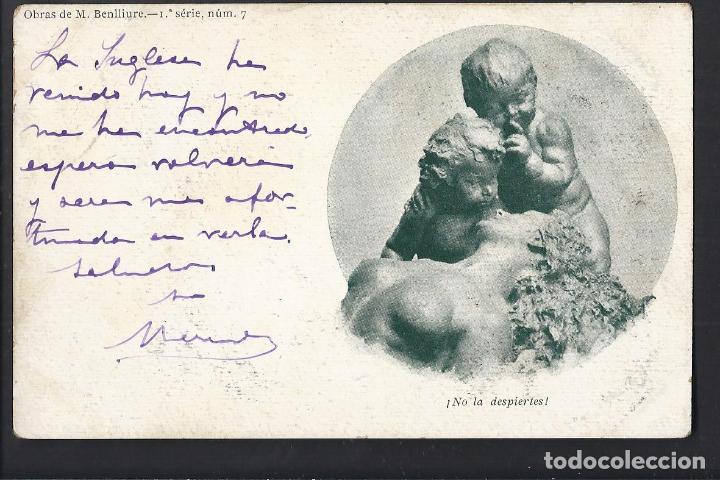 Obras de M. Benlliure.—1.ª série, núm. 7
La Inglesa ha
venido hoy y no
me ha encontrado,
espero volverá
y seré mas afor-
tunada en verla.
Saludos
su
¡No la despiertes!
todocoleccion.net